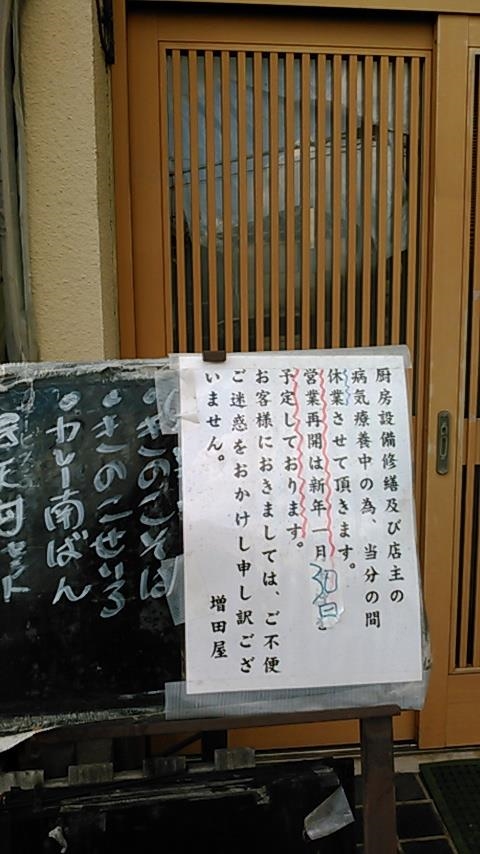 厨房設備修繕及び店主の
病気療養中の為、当分の間
休業させて頂きます。
営業再開は新年一月30日と
予定しております。
お客様におきましては、ご不便
ご迷惑をおかけし申し訳ござ
いません。
増田屋
きのこそば
・きのこせいろ
・カレー南ばん
天丼セット